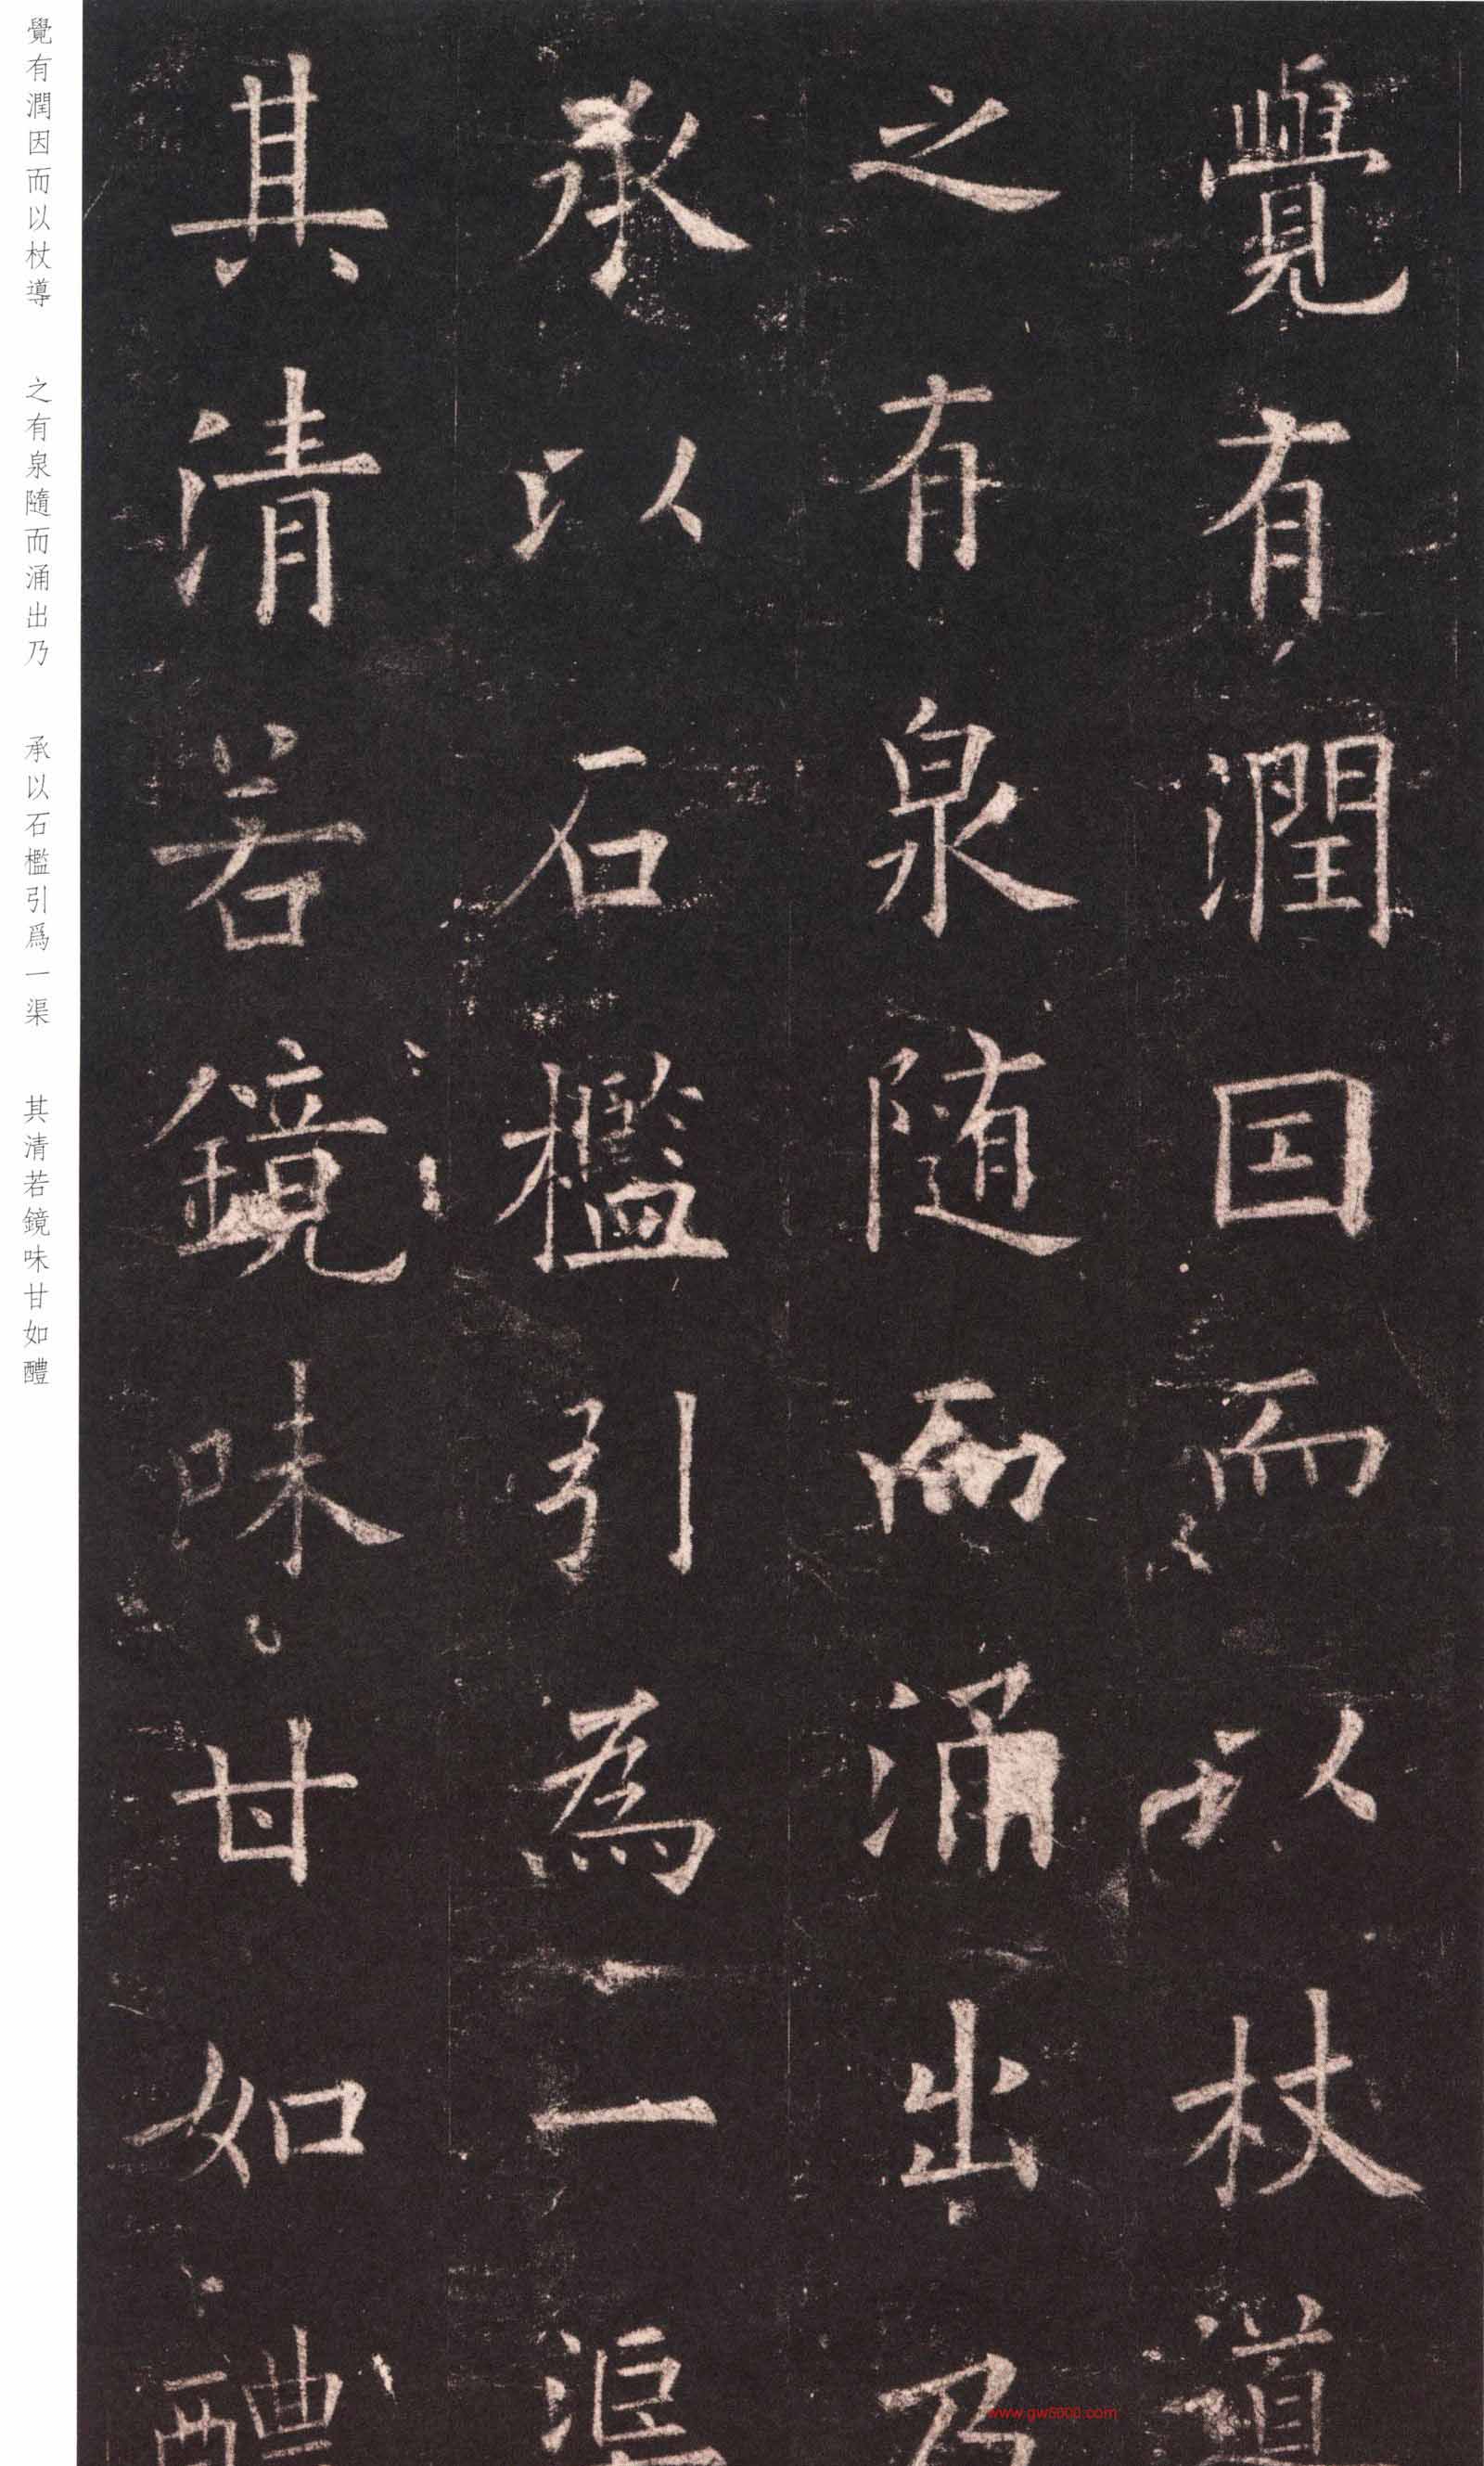 覺有潤因而以杖導
之有泉隨而涌出乃
承以石檻引為一渠
其清若鏡味甘如醴
覺有潤因而以杖導 之有泉隨而涌出乃 承以石檻引爲一渠 其清若鏡味甘如醴
www.gw5000.com